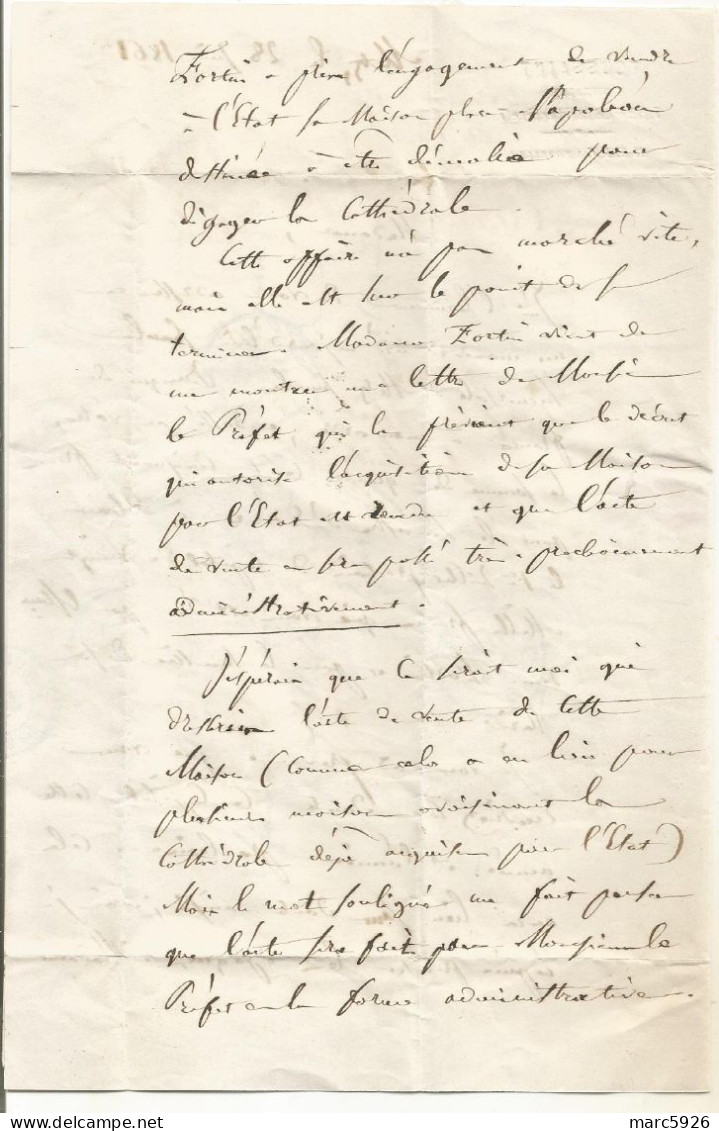 Fortin a pris l'engagement de vendre
à l'État sa Maison place Napoléon
destinée à être démolie pour
dégager la Cathédrale.
Cette affaire n'a pas marché vite,
mais elle est sur le point de se
terminer. Madame Fortin vient de
me montrer une lettre de Monsieur
le Préfet qui la prévient que le décret
qui autorise l'acquisition de sa Maison
par l'État est rendu et que l'acte
de vente en sera passé très prochainement
administrativement.
J'espérais que ce serait moi qui
dresserais l'acte de vente de cette
Maison (comme cela a eu lieu pour
plusieurs maisons avoisinant la
Cathédrale déjà acquises par l'État)
Mais le mot souligné me fait penser
que l'acte sera fait par Monsieur le
Préfet en la forme administrative.
marc5926